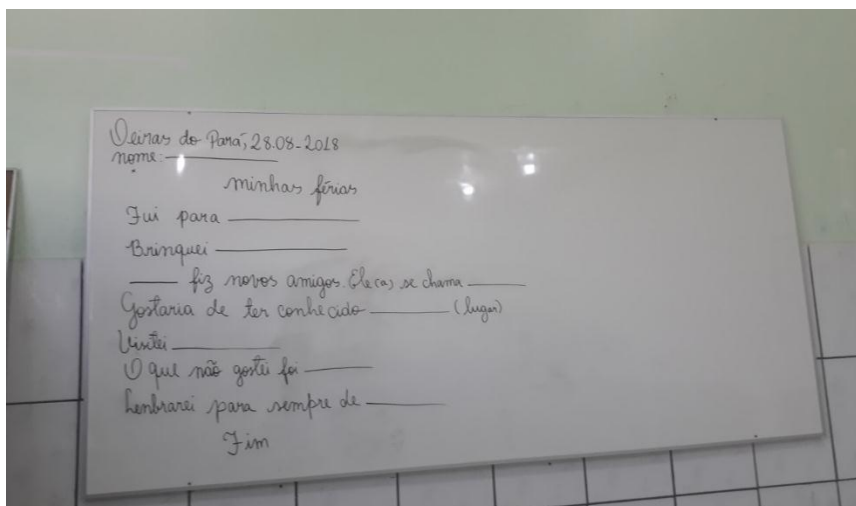 Oeiras do Pará, 28.08-2018
nome: __________
minhas férias
Fui para __________
Brinquei __________
____ fiz novos amigos. Ele(a) se chama ____
Gostaria de ter conhecido ______ (lugar)
Visitei ________
O que não gostei foi _____
Lenbrarei para sempre de ______
Fim